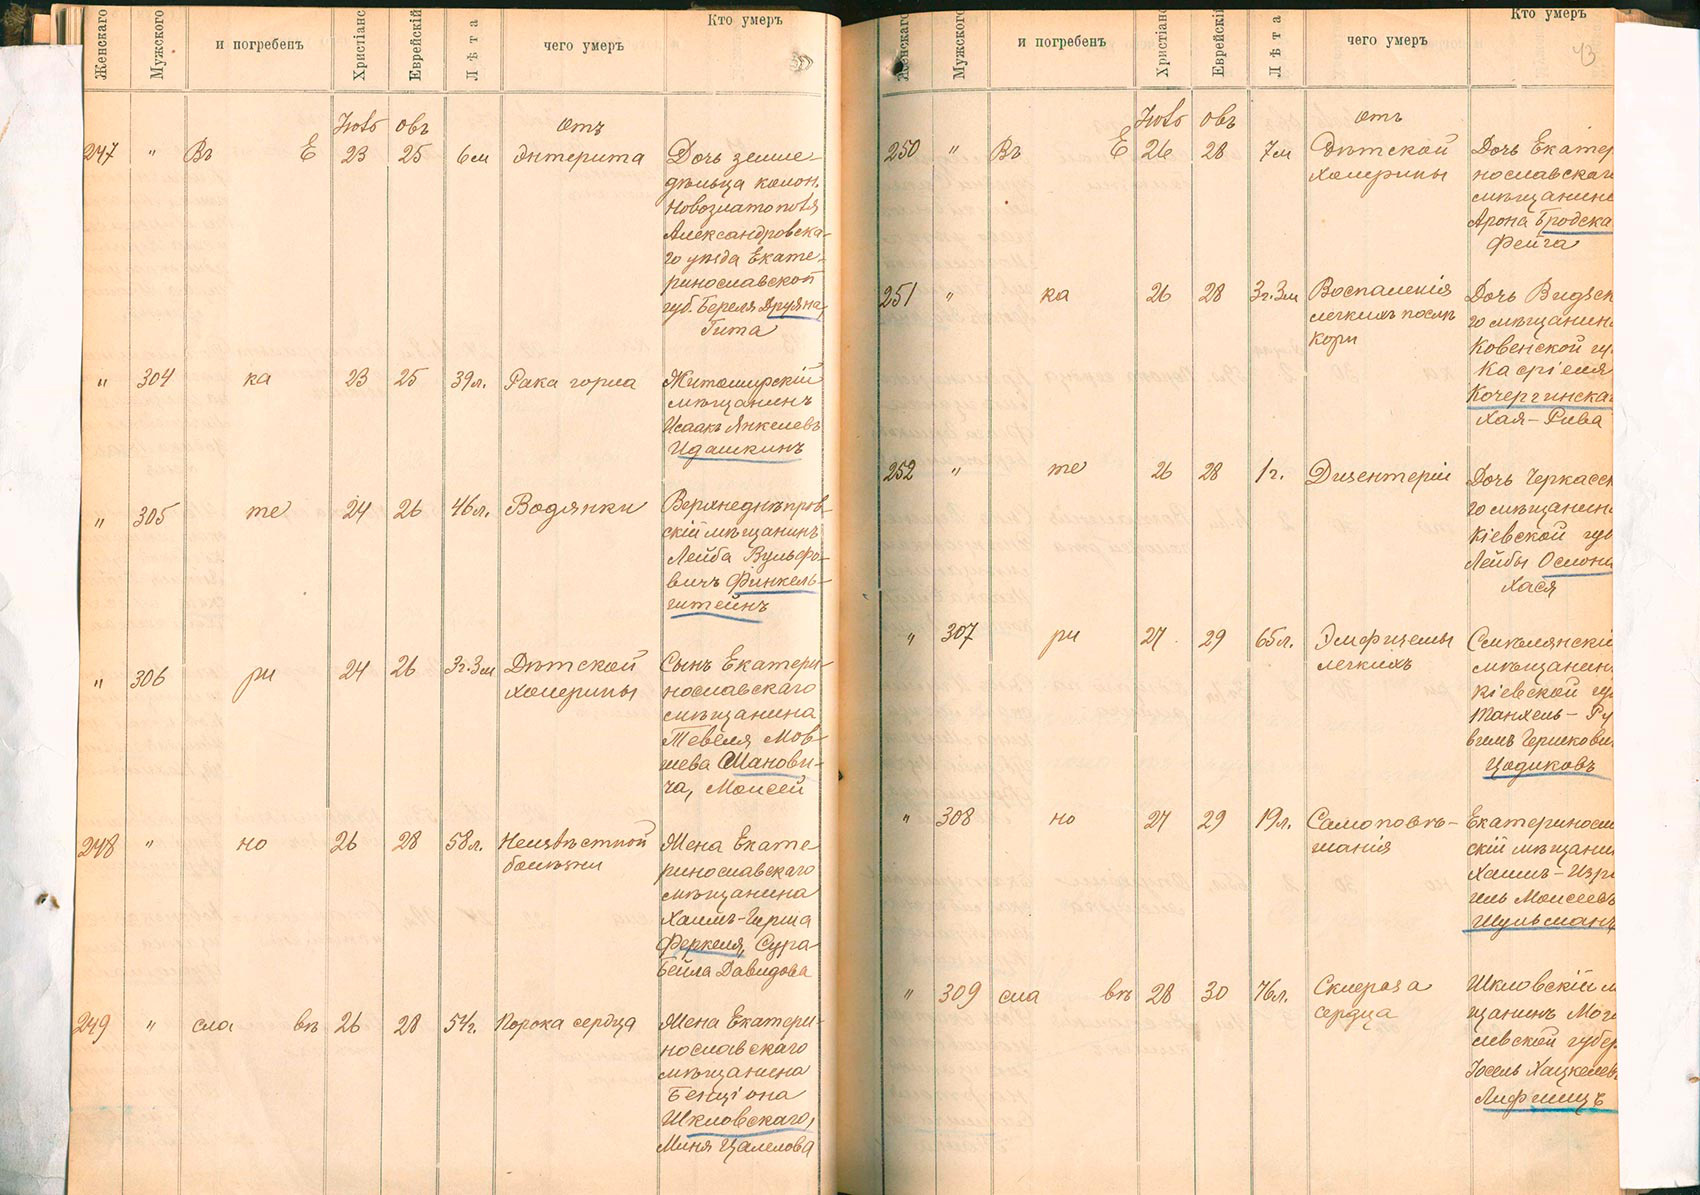 Женскаго
Мужского
и погребенъ
Христіанс
Еврейскій
Лѣта
чего умеръ
Кто умеръ
Іюль овъ отъ
247 " Въ Е 23 25 6м Энтерита Дочь земле-
дѣльца колон.
Новозлатополя
Александровска-
го уѣзда Екате-
ринославской
губ. Береля Друяна,
Гита
" 304 ка 23 25 39л. Рака горла Житомирскій
мѣщанинъ
Исаакъ Янкелевъ
Идашкинъ
" 305 те 24 26 46л. Водянки Верхнеднѣпров-
скій мѣщанинъ
Лейба Вульфо-
вичъ Финкель-
штейнъ
" 306 ри 24 26 3г.3м Дѣтской Сынъ Екатери-
холерины нославскаго
мѣщанина
Тевеля Мов-
шева Шанови-
ча, Моисей
248 " но 26 28 58л. Неизвѣстной Жена Екате
болѣзни ринославскаго
мѣщанина
Хаимъ-Герша
Феркеля, Сура-
Бейла Давидова
249 " сла въ 26 28 54г. Порока сердца Жена Екатери-
нославскаго
мѣщанина
Бенціона
Шкловскаго,
Миня Цалелова
Женскаго
Мужского
и погребенъ
Христіанс
Еврейскій
Лѣта
чего умеръ
Кто умеръ
43
Іюль овъ отъ
250 " Въ Е 26 28 7м Дѣтской Дочь Екатер
холерины нославскаг
мѣщанина
Арона Бродска
Фейга
251 " ка 26 28 3г.3м Воспаленія Дочь
легкихъ послѣ го мѣщанин
кори Ковенской гу
Касріеля
Кочергинскаг
Хая-Рива
252 " те 26 28 1г. Дизентеріи Дочь Черкасск
го мѣщанин
Кіевской гу
Лейбы Ослона
Хася
" 307 ри 27 29 65л. Эмфиземы Смѣлянскі
легкихъ мѣщанин
Кіевской гу
Танхель-Ру
вимъ Гершкови
Цодиковъ
" 308 но 27 29 19л. Самоповѣ- Екатеринос
шанія скій мѣщани
Хаимъ-Изра
иль Моисеевъ
Шульманъ
" 309 сла въ 28 30 76л. Склероза Шкловскій м
сердца щанинъ Мог
левской губе
Іосель Хацкелев
Лифшицъ